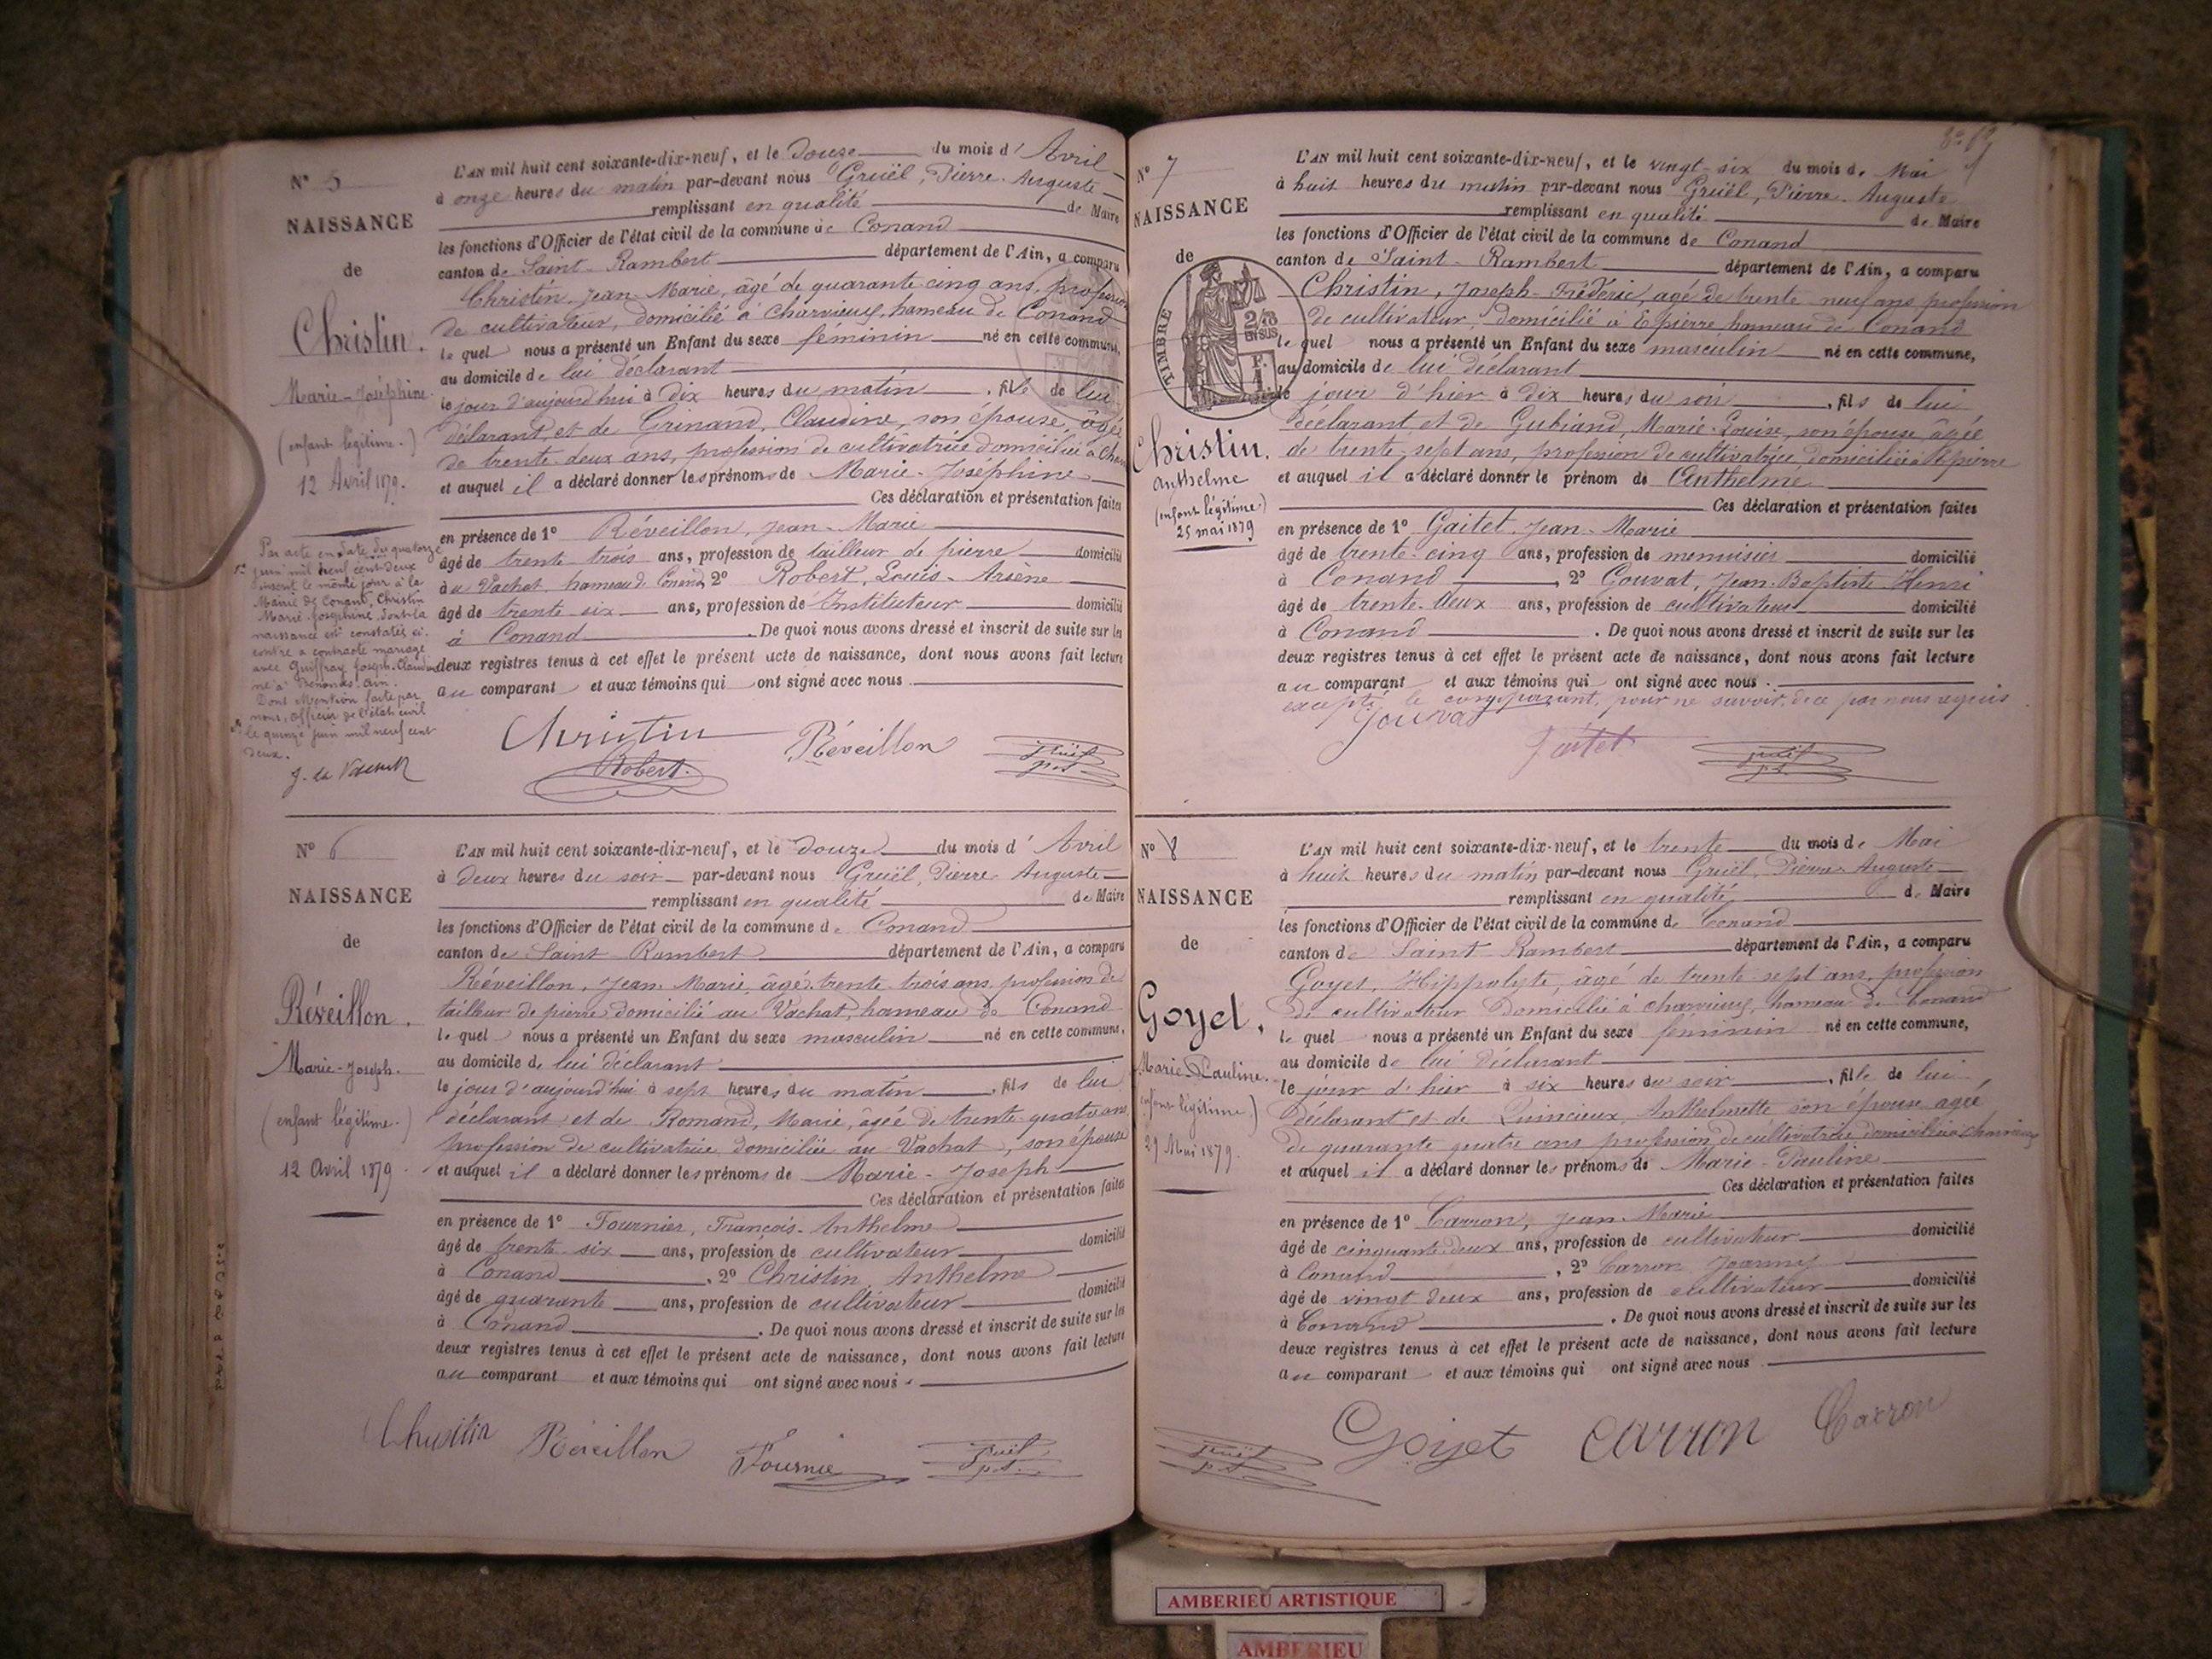 N° 5
NAISSANCE
de
Christin.
Marie-Joséphine.
(enfant légitime.)
12 Avril 1879.
Par acte en date du quatorze
juin mil neuf cent deux
inscrit le même jour à la
Mairie de Conand, Christin
Marie Joséphine, dont la
naissance est constatée ci-
contre a contracté mariage
avec Guiffray Joseph-Claudius
né à Ain.
Dont Mention faite par
nous, officier de l'état civil
le quinze juin mil neuf cent
deux.
L'AN mil huit cent soixante-dix-neuf, et le Douze du mois d'Avril
à onze heures du matin par-devant nous Gruël, Pierre-Auguste
remplissant en qualité de Maire
les fonctions d'Officier de l'état civil de la commune de Conand
canton de Saint-Rambert département de l'Ain, a comparu
Christin Jean-Marie, âgé de quarante cinq ans, profession
de cultivateur, domicilié à Charvieux, hameau de Conand
lequel nous a présenté un Enfant du sexe féminin né en cette commune,
au domicile de lui déclarant
le jour d'aujourd'hui à dix heures du matin, fille de lui
déclarant, et de Grinand, Claudine, son épouse, âgée
de trente-deux ans, profession de cultivatrice domiciliée à Char
et auquel il a déclaré donner les prénoms de Marie-Joséphine
Ces déclaration et présentation faites
en présence de 1° Réveillon, Jean-Marie
âgé de trente trois ans, profession de tailleur de pierre domicilié
à au Vachat, hameau de Conand, 2° Robert, Louis-Arsène
âgé de trente six ans, profession de Instituteur domicilié
à Conand. De quoi nous avons dressé et inscrit de suite sur les
deux registres tenus à cet effet le présent acte de naissance, dont nous avons fait lecture
au comparant et aux témoins qui ont signé avec nous.
Christin Réveillon
Robert. Gruël
N° 6
NAISSANCE
de
Réveillon.
Marie-Joseph.
(enfant légitime.)
12 Avril 1879
L'AN mil huit cent soixante-dix-neuf, et le Douze du mois d'Avril
à deux heures du soir par-devant nous Gruël, Pierre Auguste
remplissant en qualité de Maire
les fonctions d'Officier de l'état civil de la commune de Conand
canton de Saint-Rambert département de l'Ain, a comparu
Réveillon, Jean-Marie, âgé trente-trois ans, profession de
tailleur de pierre domicilié au Vachat, hameau de Conand
lequel nous a présenté un Enfant du sexe masculin né en cette commune,
au domicile de lui déclarant
le jour d'aujourd'hui à sept heures du matin, fils de lui
déclarant et de Romand, Marie, âgée de trente-quatre ans
profession de cultivatrice domiciliée au Vachat, son épouse
et auquel il a déclaré donner les prénoms de Marie-Joseph
Ces déclaration et présentation faites
en présence de 1° Fournier, François-Anthelme
âgé de trente-six ans, profession de cultivateur domicilié
à Conand, 2° Christin Anthelme
âgé de quarante ans, profession de cultivateur domicilié
à Conand. De quoi nous avons dressé et inscrit de suite sur les
deux registres tenus à cet effet le présent acte de naissance, dont nous avons fait lecture
au comparant et aux témoins qui ont signé avec nous.
Christin Réveillon Fournier Gruël
N° 7
NAISSANCE
de
TIMBRE
2/10 EN SUS
Christin.
Anthelme
(enfant légitime)
25 mai 1879
L'AN mil huit cent soixante-dix-neuf, et le vingt-six du mois de Mai
à huit heures du matin par-devant nous Gruël, Pierre-Auguste
remplissant en qualité de Maire
les fonctions d'Officier de l'état civil de la commune de Conand
canton de Saint-Rambert département de l'Ain, a comparu
Christin, Joseph-Frédéric, âgé de trente-neuf ans profession
de cultivateur, domicilié à Epierre hameau de Conand
lequel nous a présenté un Enfant du sexe masculin né en cette commune,
au domicile de lui déclarant
le jour d'hier à dix heures du soir, fils de lui
déclarant et de Gubiand, Marie-Louise, son épouse âgée
de trente-sept ans, profession de cultivatrice domiciliée à Epierre
et auquel il a déclaré donner le prénom de Anthelme
Ces déclaration et présentation faites
en présence de 1° Gaitet Jean-Marie
âgé de trente-cinq ans, profession de menuisier domicilié
à Conand, 2° Gouvat, Jean-Baptiste Henri
âgé de trente-deux ans, profession de cultivateur domicilié
à Conand. De quoi nous avons dressé et inscrit de suite sur les
deux registres tenus à cet effet le présent acte de naissance, dont nous avons fait lecture
au comparant et aux témoins qui ont signé avec nous.
excepté le comparant, pour ne savoir, de ce par nous requis
Gouvat
Gaitet Gruël
N° 8
NAISSANCE
de
Goyet.
Marie-Pauline.
enfant légitime)
29 Mai 1879.
L'AN mil huit cent soixante-dix-neuf, et le trente du mois de Mai
à huit heures du matin par-devant nous Gruël, Pierre-Auguste
remplissant en qualité de Maire
les fonctions d'Officier de l'état civil de la commune de Conand
canton de Saint Rambert département de l'Ain, a comparu
Goyet, Hippolyte, âgé de trente-sept ans, profession
de cultivateur domicilié à Charvieux, hameau de Conand
lequel nous a présenté un Enfant du sexe féminin né en cette commune,
au domicile de lui déclarant
le jour d'hier à six heures du soir, fille de lui
déclarant et de Quincieux, Anthelmette son épouse âgée
de quarante quatre ans profession de cultivatrice domiciliée à Charvieux
et auquel il a déclaré donner les prénoms de Marie-Pauline
Ces déclaration et présentation faites
en présence de 1° Carron, Jean-Marie
âgé de cinquante-deux ans, profession de cultivateur domicilié
à Conand, 2° Carron Joanny
âgé de vingt deux ans, profession de cultivateur domicilié
à Conand. De quoi nous avons dressé et inscrit de suite sur les
deux registres tenus à cet effet le présent acte de naissance, dont nous avons fait lecture
au comparant et aux témoins qui ont signé avec nous
Gruël Goyet Carron Carron
AMBERIEU ARTISTIQUE
AMBERIEU